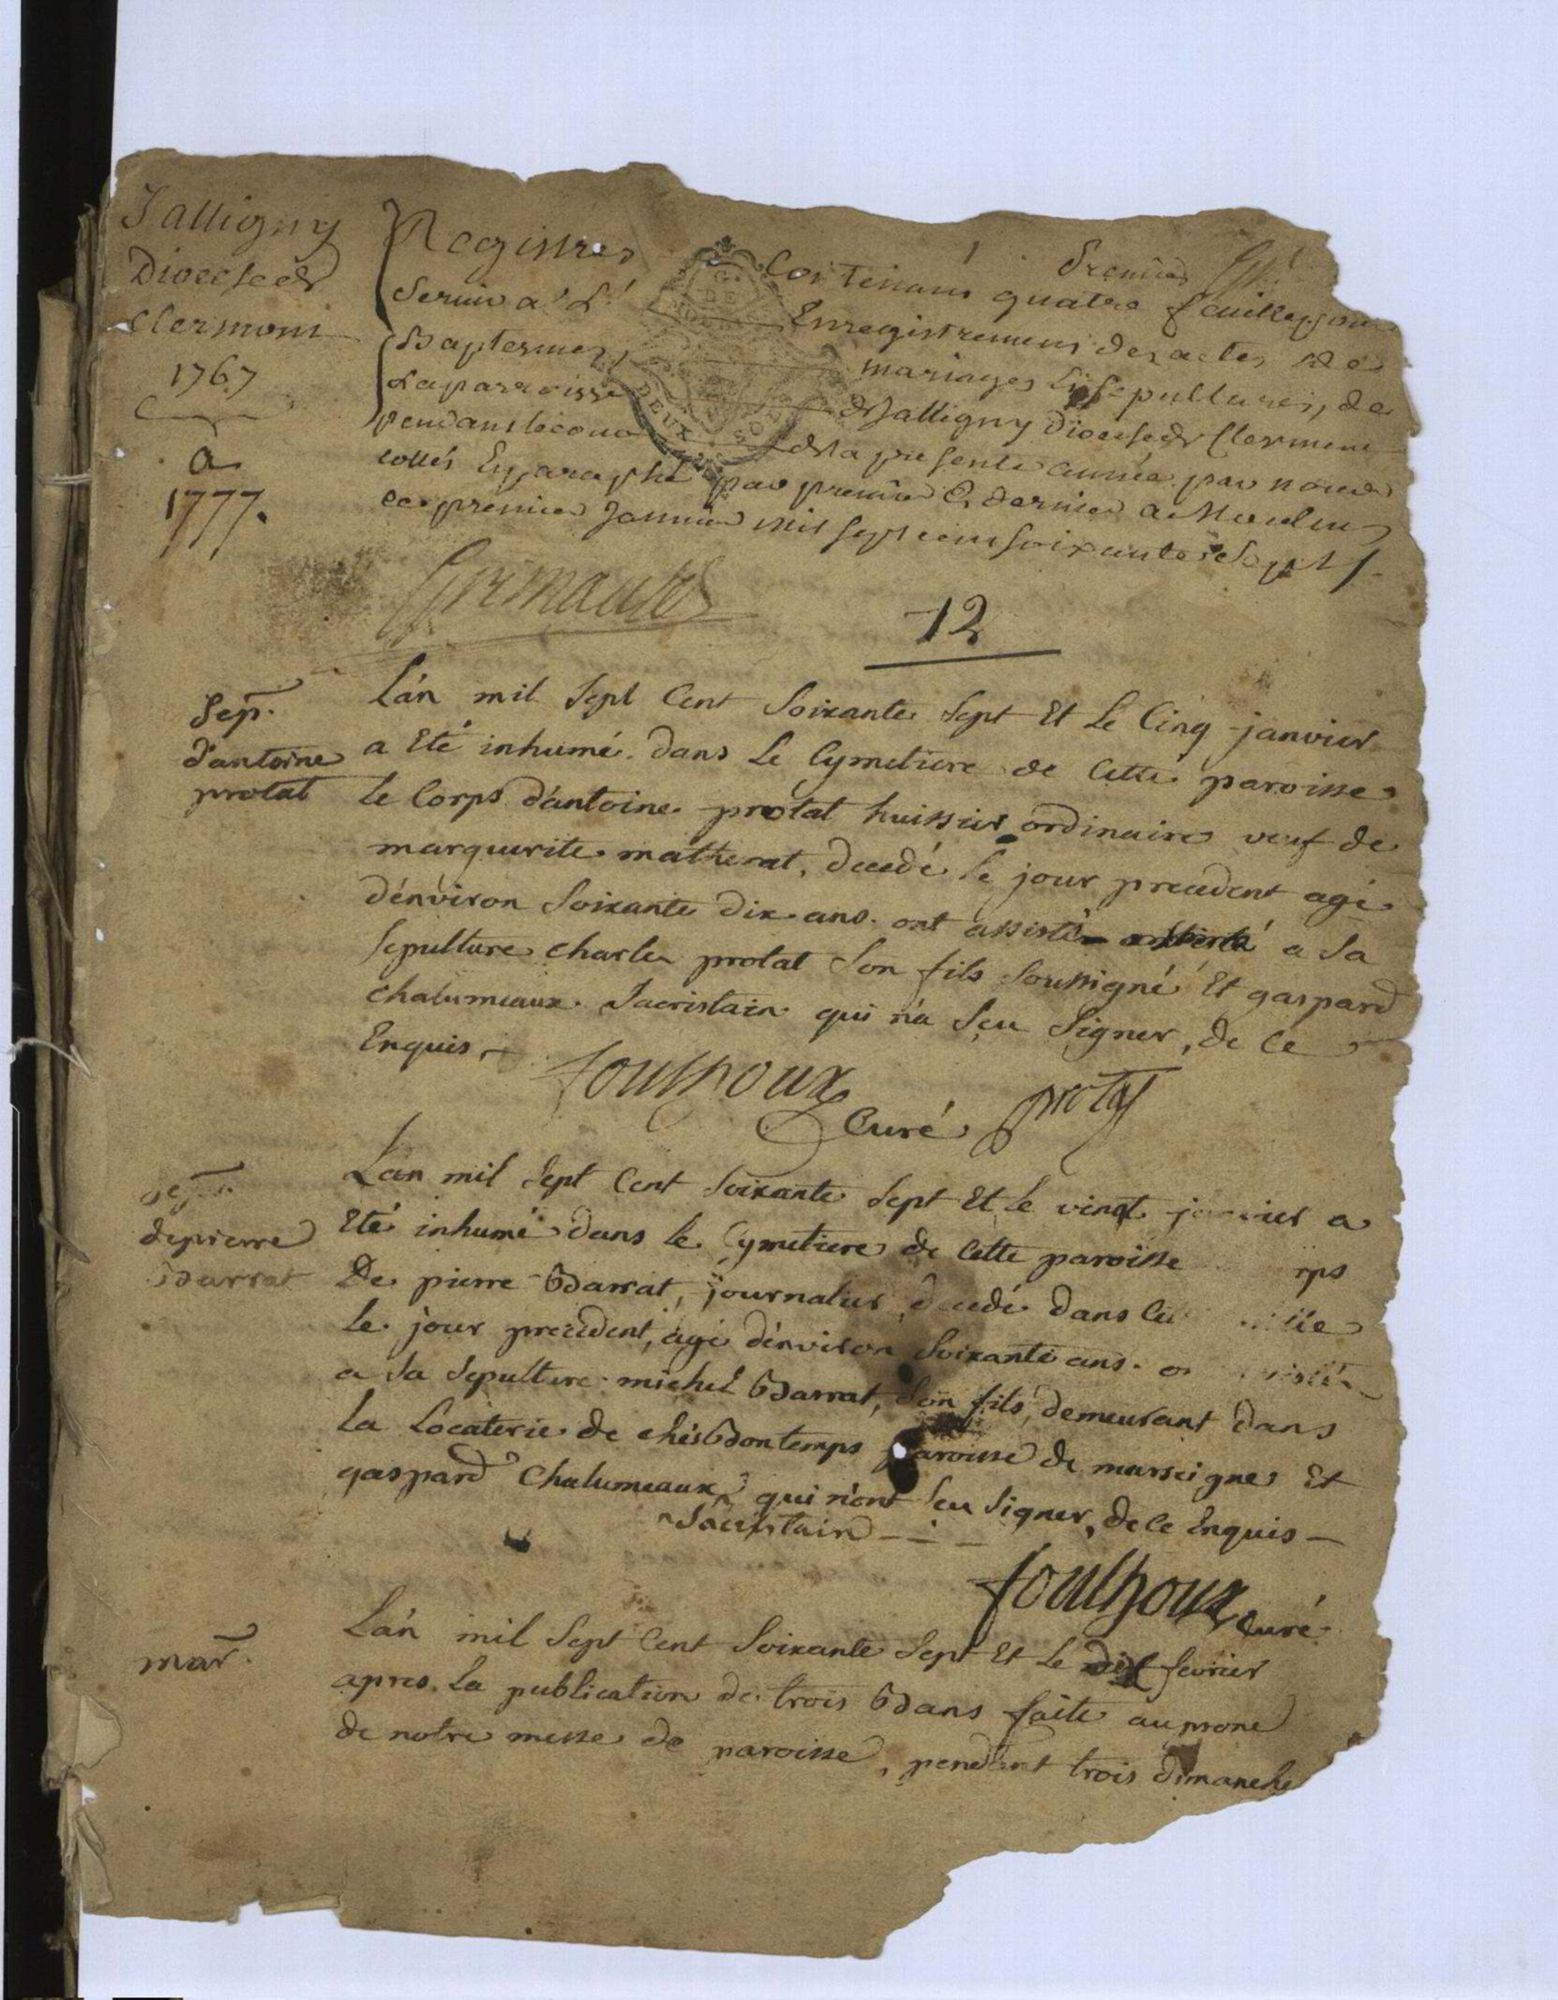 Jalligny
Diocese de
Clermont
1767
a
1777.
premier
Registres Contenant quatre feuilles pour
Servir a L' Enregistrement des actes de
Baptesmes, mariages Et Sepultures, de
La parroisse de Jalligny Diocese de Clermont
pendant le cours de la presente année, par nous
cottés Et paraphé par premier & dernier a Moulins
ce premier Janvier mil sept cent soixante sept
G. DE
MOULINS
DEUX SOLS
Grimauld
12
Sep.
d'antoine
protat
L'an mil sept Cent Soixante Sept Et Le Cinq janvier
a Eté inhumé dans Le Cymetiere de Cette paroisse
le Corps d'antoine protat huissier ordinaire veuf de
marguerite matherat, decedé le jour precedent agé
d'énviron Soixante Dix ans. ont assisté a Sa
sepulture charles protat Son fils Soussigné Et gaspard
chalumeaux Sacristain qui n'a Sçu Signer, de Ce
Enquis
foulhoux Curé protat
Sep.
de pierre
Barrat
L'an mil Sept Cent Soixante Sept Et Le vingt janvier a
Eté inhumé dans le Cymetiere de Cette paroisse rps
De pierre Barrat, journalier decedé dans
le jour precedent, agé d'énviron Soixante ans.
a Sa Sepulture michel Barrat, Son fils, demeurant dans
La Locaterie de chés Bontemps paroisse de marseigne Et
gaspard Chalumeaux qui n'ont Sçu Signer, de Ce Enquis
Sacristain
foulhoux Curé
mar.
L'an mil Sept Cent Soixante Sept Et Le dix fevrier
apres La publication de trois Bans faite au prone
de notre messe de paroisse, pendant trois dimanche